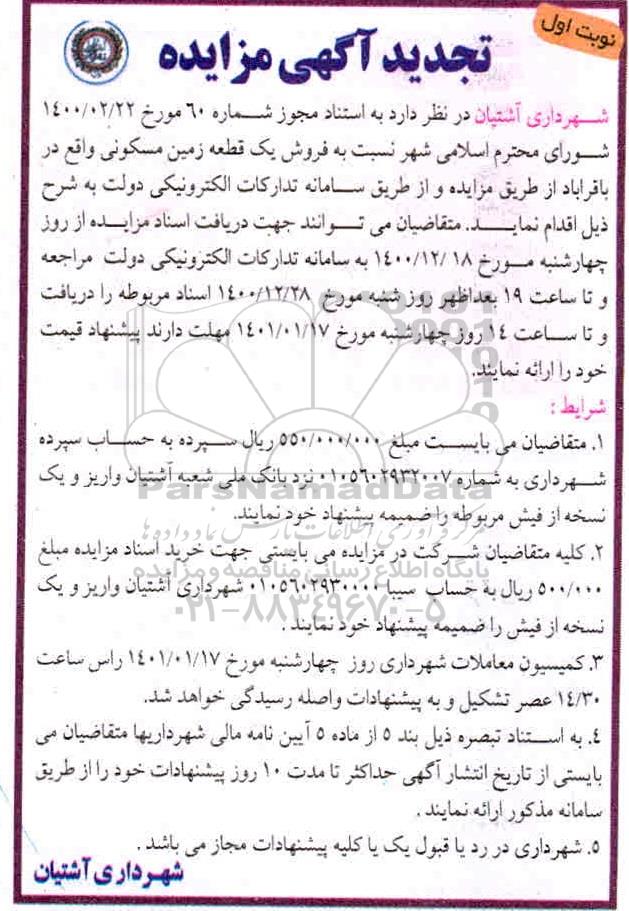 نوبت اول
تجدید آگهی مزایده
شهرداری آشتیان در نظر دارد به استناد مجوز شماره ۶۰ مورخ ۱۴۰۰/۰۲/۲۲
شورای محترم اسلامی شهر نسبت به فروش یک قطعه زمین مسکونی واقع در
باقراباد از طریق مزایده و از طریق سامانه تدارکات الکترونیکی دولت به شرح
ذیل اقدام نماید. متقاضیان می توانند جهت دریافت اسناد مزایده از روز
چهارشنبه مورخ ۱۴۰۰/۱۲/۱۸ به سامانه تدارکات الکترونیکی دولت مراجعه
و تا ساعت ۱۹ بعداظهر روز شنبه مورخ ۱۴۰۰/۱۲/۲۸ اسناد مربوطه را دریافت
و تا ساعت ۱۴ روز چهارشنبه مورخ ۱۴۰۱/۰۱/۱۷ مهلت دارند پیشنهاد قیمت
خود را ارائه نمایند.
شرایط :
۱. متقاضیان می بایست مبلغ ۵۵۰/۰۰۰/۰۰۰ ریال سپرده به حساب سپرده
شهرداری به شماره ۰۱۰۵۶۰۲۹۳۲۰۰۷ نزد بانک ملی شعبه آشتیان واریز و یک
ParsNamadData
نسخه از فیش مربوطه را ضمیمه پیشنهاد خود نمایند.
مرکز فرآوری اطلاعات پارس نماد داده ها
۲. کلیه متقاضیان شرکت در مزایده می بایستی جهت خرید اسناد مزایده مبلغ
پایگاه اطلاع رسانی مناقصه و مزایده
۵۰۰/۰۰۰ ریال به حساب سیبا ۰۱۰۵۶۰۲۹۳۰۰۰۰ شهرداری آشتیان واریز و یک
۰۲۱-۸۸۳۴۹۶۷۰-۵
نسخه از فیش را ضمیمه پیشنهاد خود نمایند .
۳. کمیسیون معاملات شهرداری روز چهارشنبه مورخ ۱۴۰۱/۰۱/۱۷ راس ساعت
۱۴/۳۰ عصر تشکیل و به پیشنهادات واصله رسیدگی خواهد شد.
۴. به استناد تبصره ذیل بند ۵ از ماده ۵ آیین نامه مالی شهرداریها متقاضیان می
بایستی از تاریخ انتشار آگهی حداکثر تا مدت ۱۰ روز پیشنهادات خود را از طریق
سامانه مذکور ارائه نمایند .
۵. شهرداری در رد یا قبول یک یا کلیه پیشنهادات مجاز می باشد .
شهرداری آشتیان